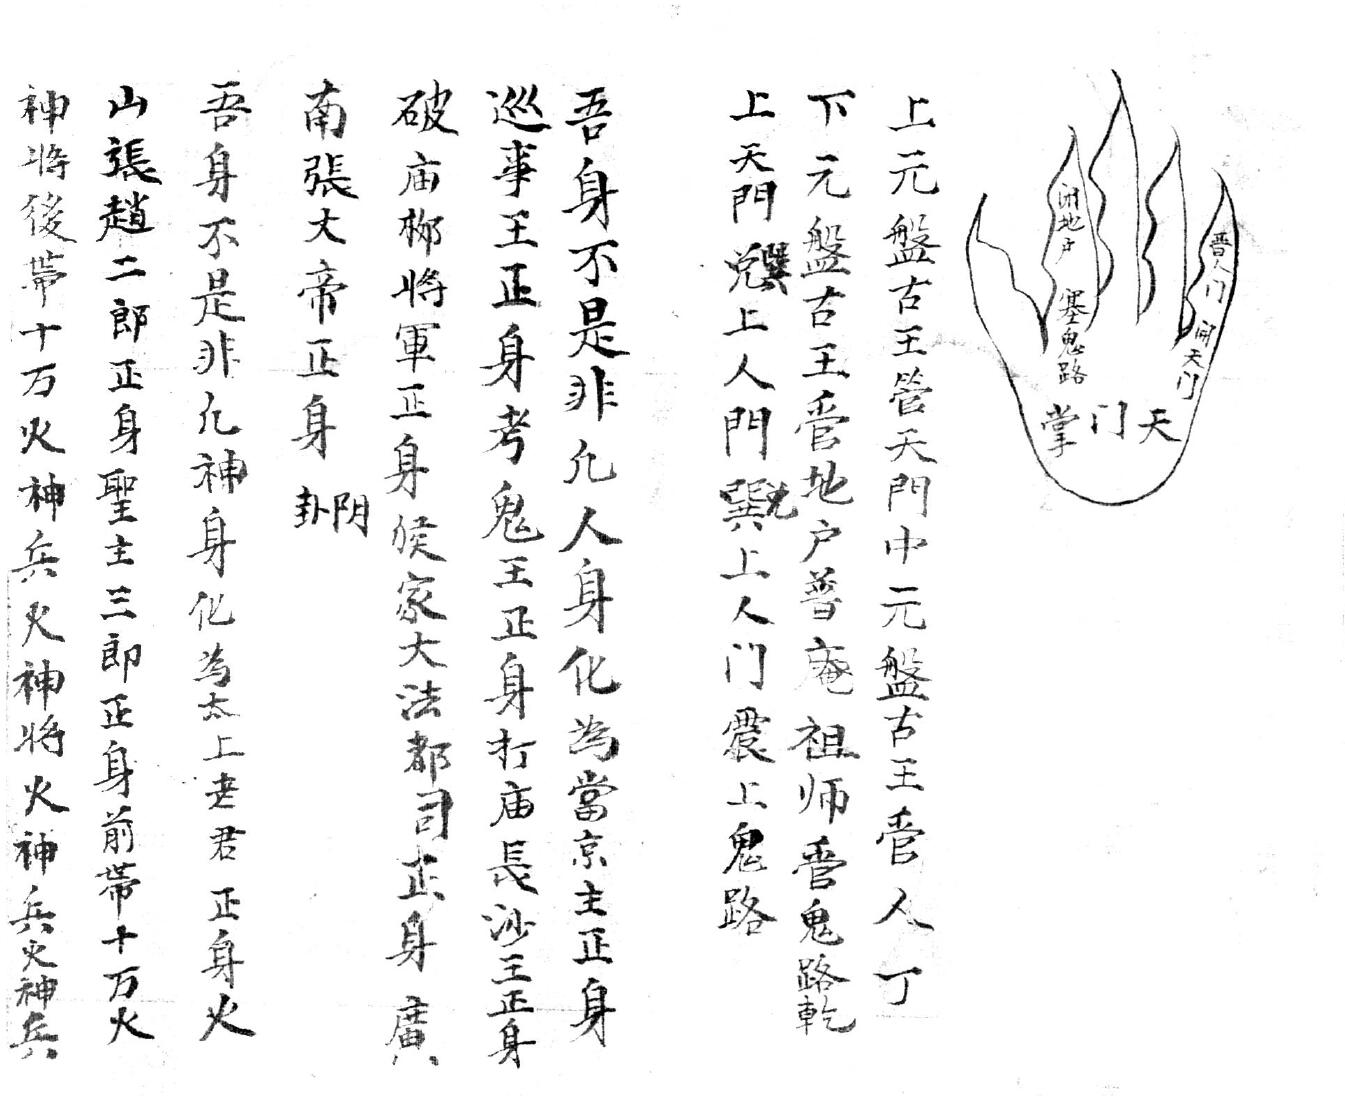 天门掌
開天门
普人门
塞鬼路
闭地户
上元盤古王管天門中元盤古王管人丁
下元盤古王管地户普庵祖师管鬼路乾
上天門兑巽上人門巽兑上人门震上鬼路
吾身不是非凡人身化為當京主正身
巡事王正身考鬼王正身打庙長沙王正身
破庙柳将軍正身侯家大法都司正身廣
南張大帝正身 阴卦
吾身不是非凡神身化為太上老君正身火
山張趙二郎正身聖主三郎正身前带十万火
神将後带十万火神兵火神将火神兵火神兵